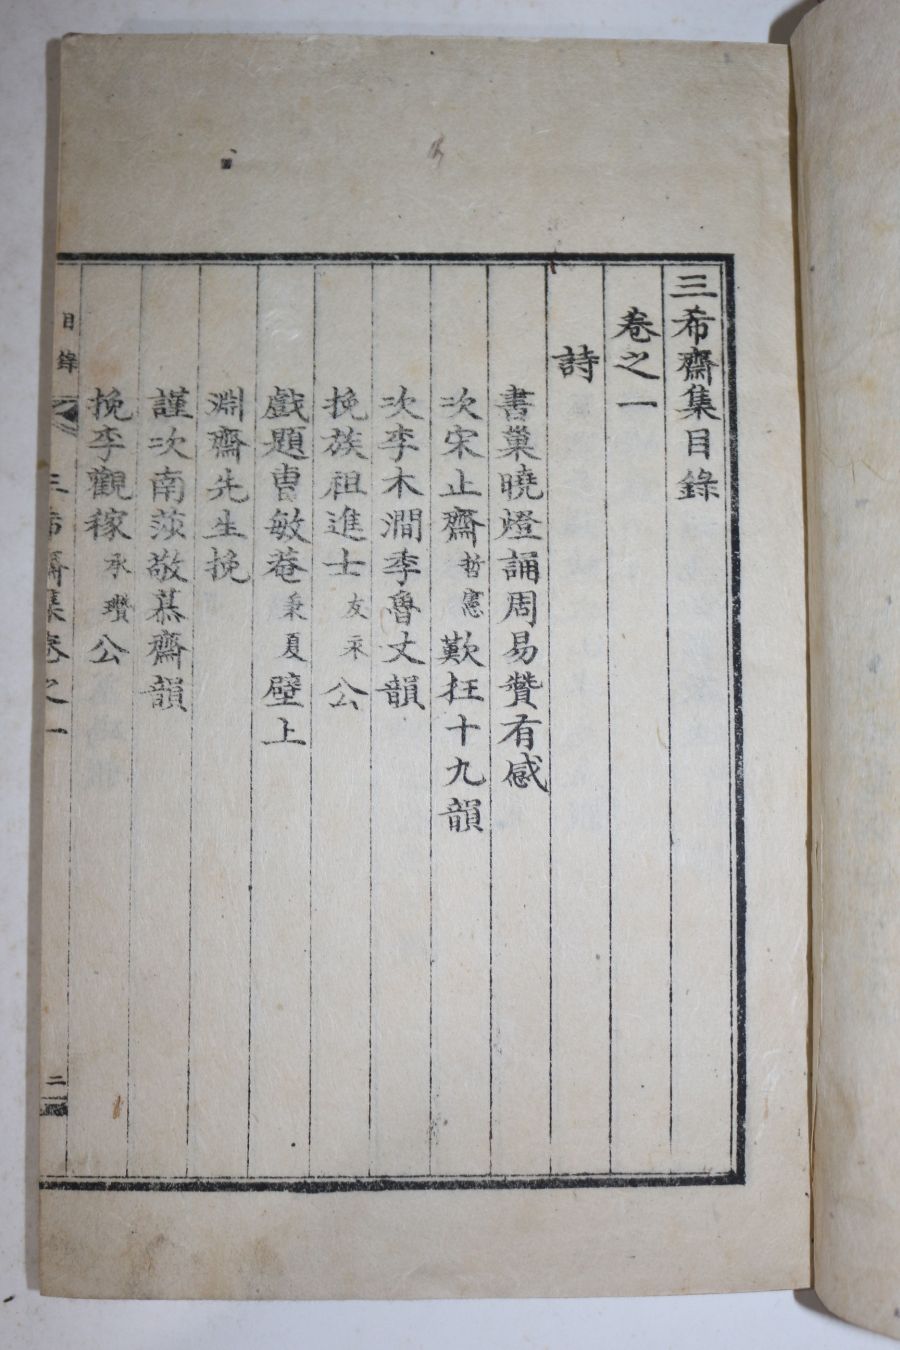 三希齋集目錄
卷之一
詩
書巢曉燈誦周易贊有感
次宋止齋哲憲歎狂十九韻
次李木澗李魯丈韻
挽族祖進士友釆公
戲題曺敏菴秉夏壁上
淵齋先生挽
謹次南莎敬慕齋韻
挽李觀稼承瓚公
三希齋集卷之一 目錄 二